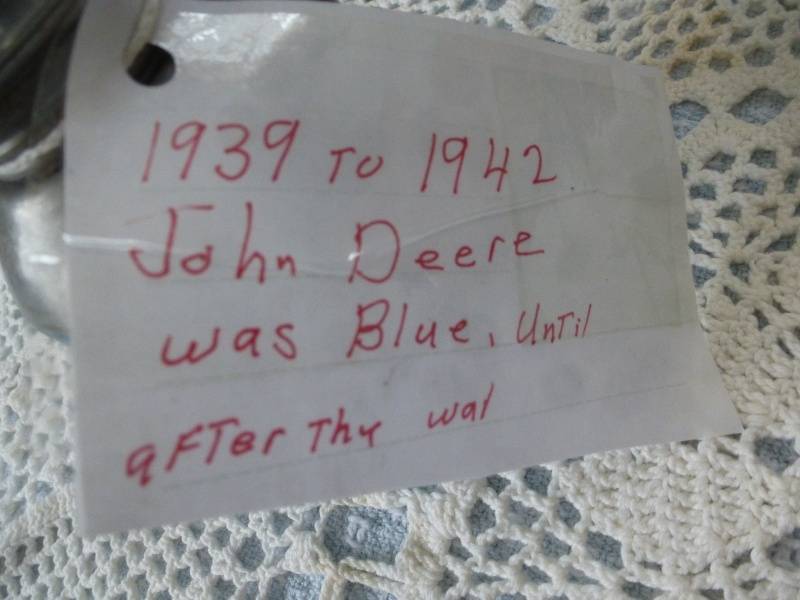 1939 TO 1942
John Deere
was Blue, UnTil
aFTer Thy war